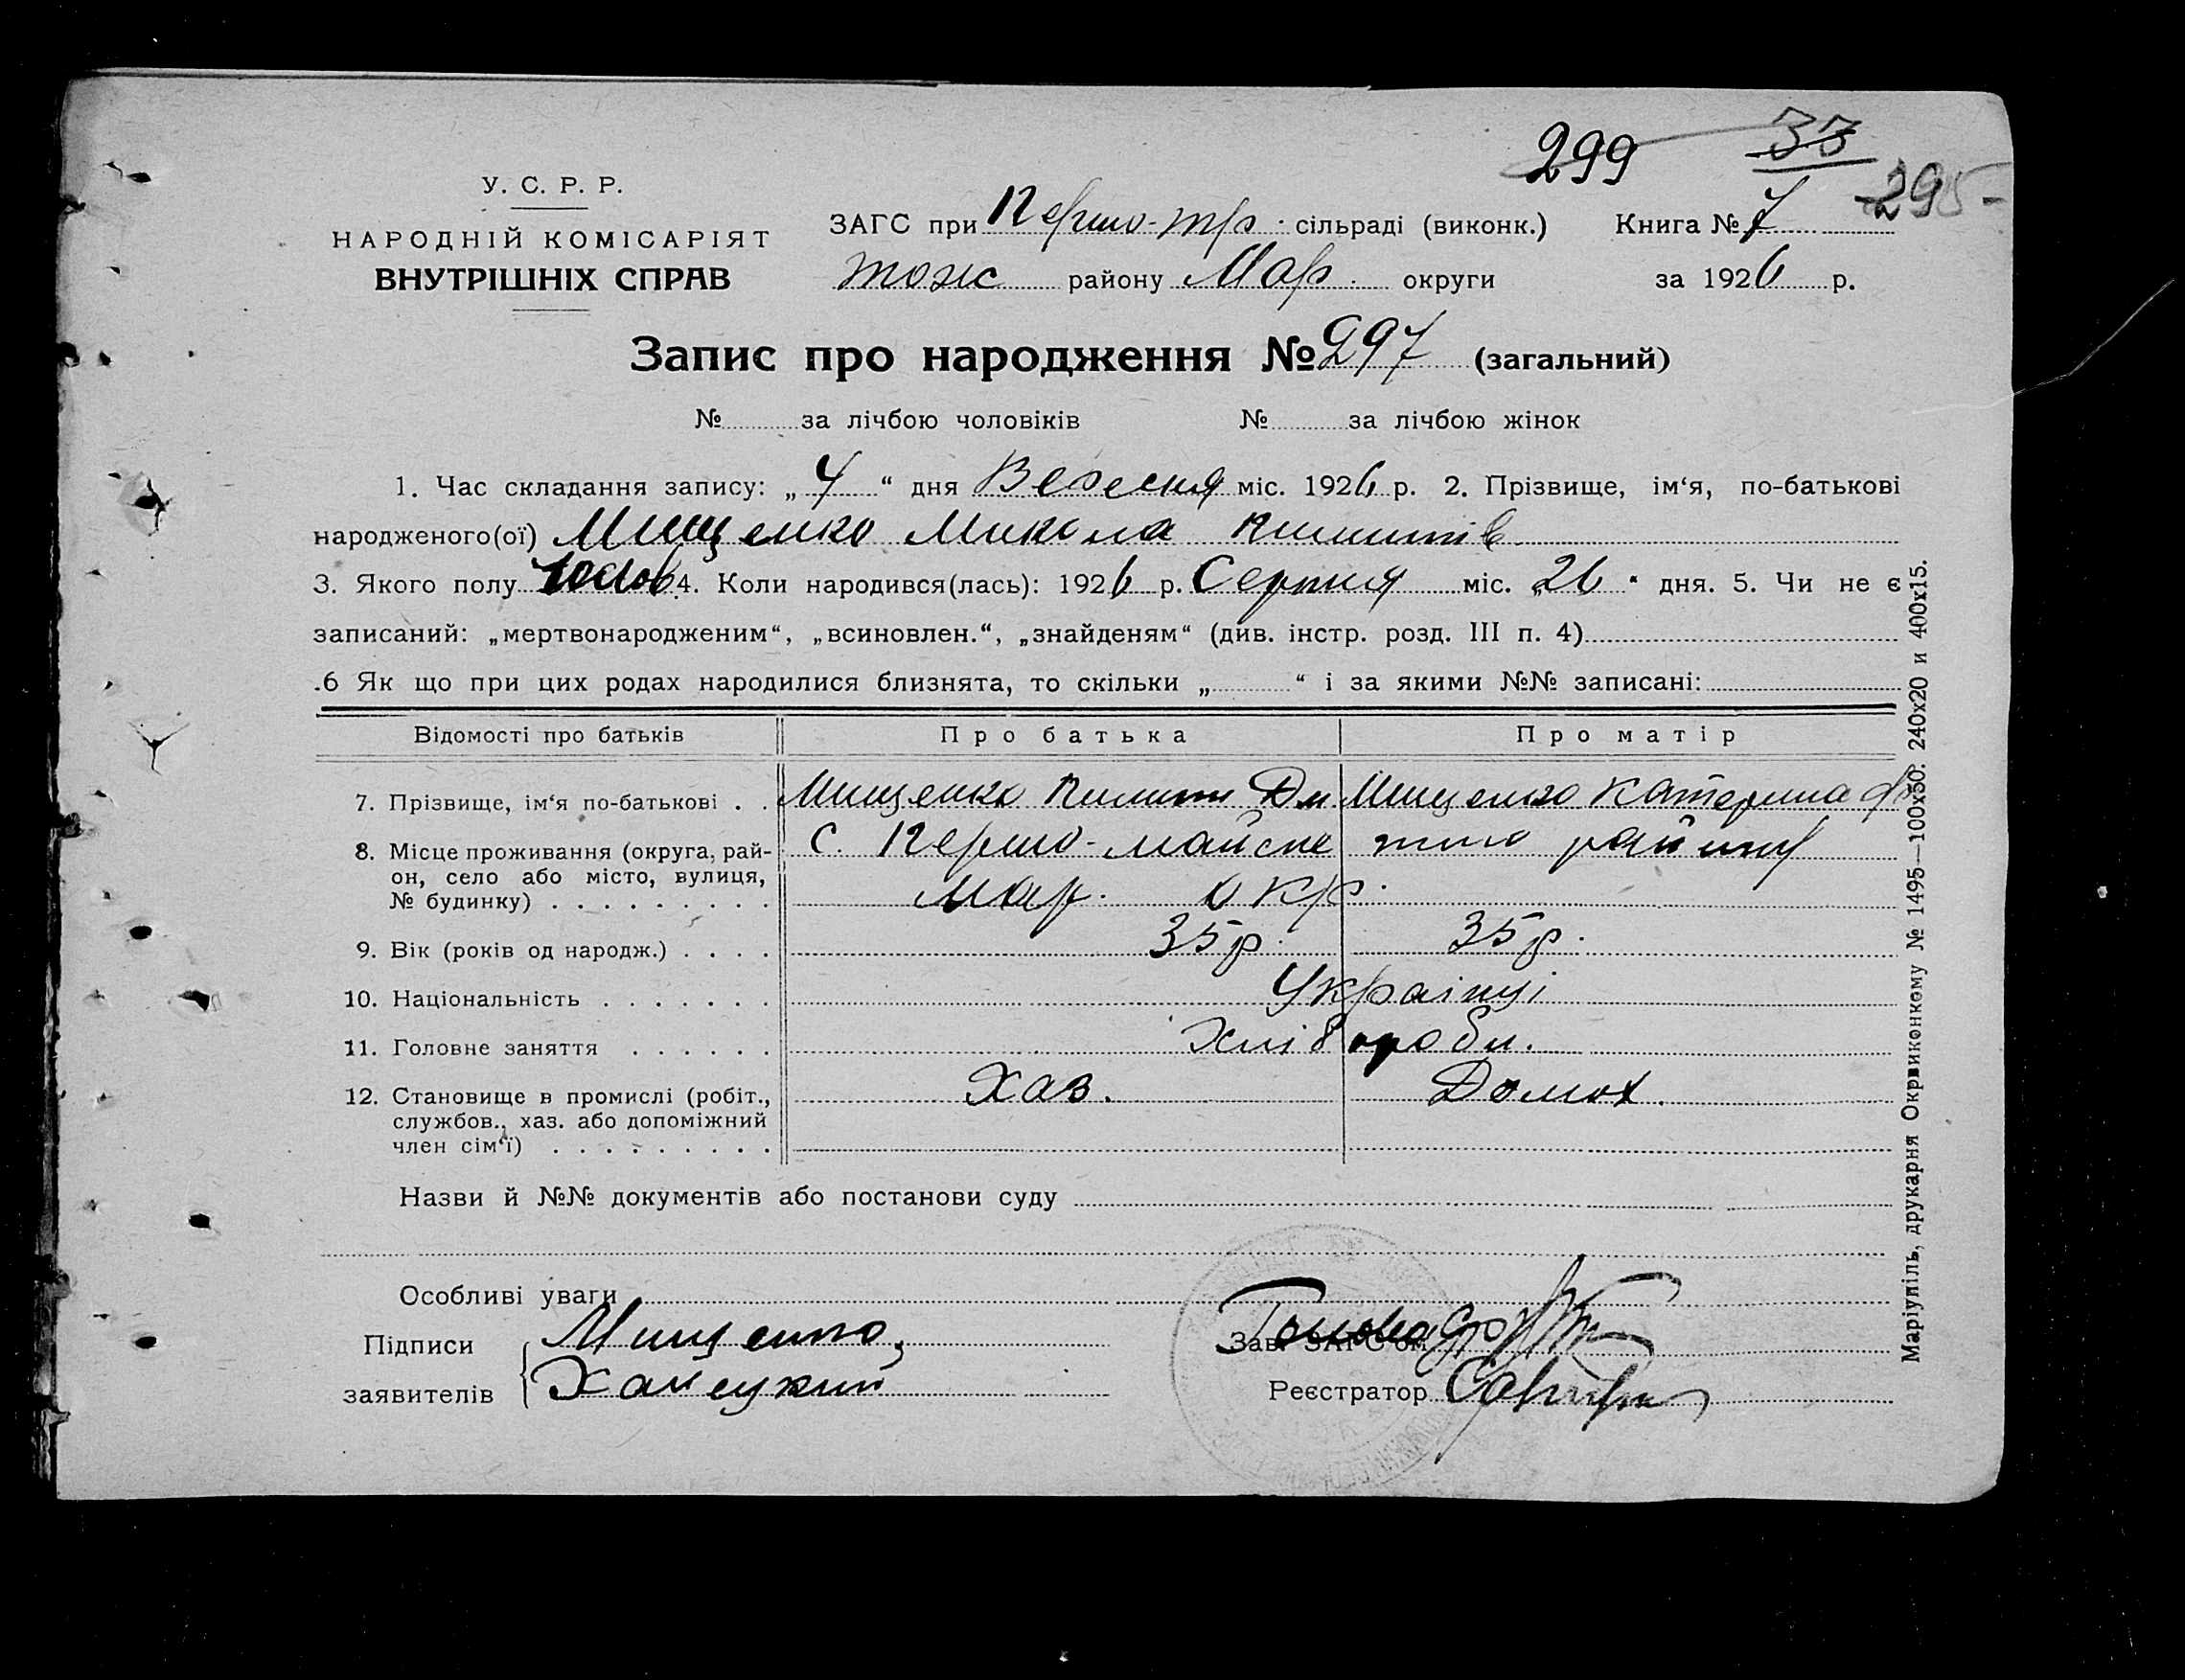 299 33
295-
У. С. Р. Р.
НАРОДНІЙ КОМІСАРІЯТ
ВНУТРІШНІХ СПРАВ
ЗАГС при Першо-тр. сільраді (виконк.) Книга № 7
тож району Мар. округи за 1926 р.
Запис про народження № 297 (загальний)
№ за лічбою чоловіків № за лічбою жінок
1. Час складання запису: „4“ дня Вересня міс. 1926 р. 2. Прізвище, ім‘я, по-батькові
народженого(ої) Мищенко Микола Пилипів
3. Якого полу 4. Коли народився(лась): 1926 р. Серпня міс. „26“ дня. 5. Чи не є
записаний: „мертвонародженим“, „всиновлен.“, „знайденям“ (див. інстр. розд. III п. 4)
.6 Як що при цих родах народилися близнята, то скільки „ “ і за якими №№ записані:
Відомості про батьків Про батька Про матір
7. Прізвище, ім‘я по-батькові . . Мищенко Пилип Дм. Мищенко Катерина
8. Місце проживання (округа, рай- с. Першо-майське того району
он, село або місто, вулиця,
№ будинку) . . . . . . . . . Мар. окр.
9. Вік (років од народж.) . . . . 35 р. 35 р.
10. Національність . . . . . . . Українці
11. Головне заняття . . . . . . Хліборобы.
12. Становище в промислі (робіт., Хаз. Домох.
службов., хаз. або допоміжний
член сім‘ї) . . . . . . . . .
Назви й №№ документів або постанови суду
Особливі уваги
Підписи Мищенко,
заявителів
Зав. ЗАГС‘ом Голова
Реєстратор
Маріупіль, друкарня Окрвиконкому № 1495—100х50. 240х20 и 400х15.